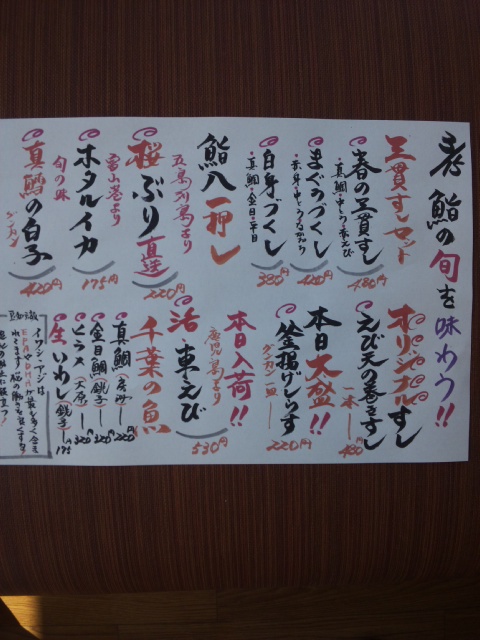 春 鮨の旬を味わう!!
三貫すしセット
春の三貫すし
・真鯛・中とろ・赤えび
480円
まぐろづくし
480円
白身づくし
・真鯛・金目・平目
380円
鮨八一押し
五島列島より
桜ぶり直送
220円
富山港より
ホタルイカ
175円
旬の味
真鱈の白子
グンカン
420円
オリジナルすし
えび天の巻きすし
一本 480円
本日大盛!!
釜揚げしらす
グンカン一皿 220円
本日入荷!!
鹿児島より
活車えび
530円
千葉の魚
真鯛 220円
金目鯛(銚子) 320円
ヒラメ(大原) 320円
生いわし(銚子) 175
豆知識
イワシ・アジは
EPAやDHAが